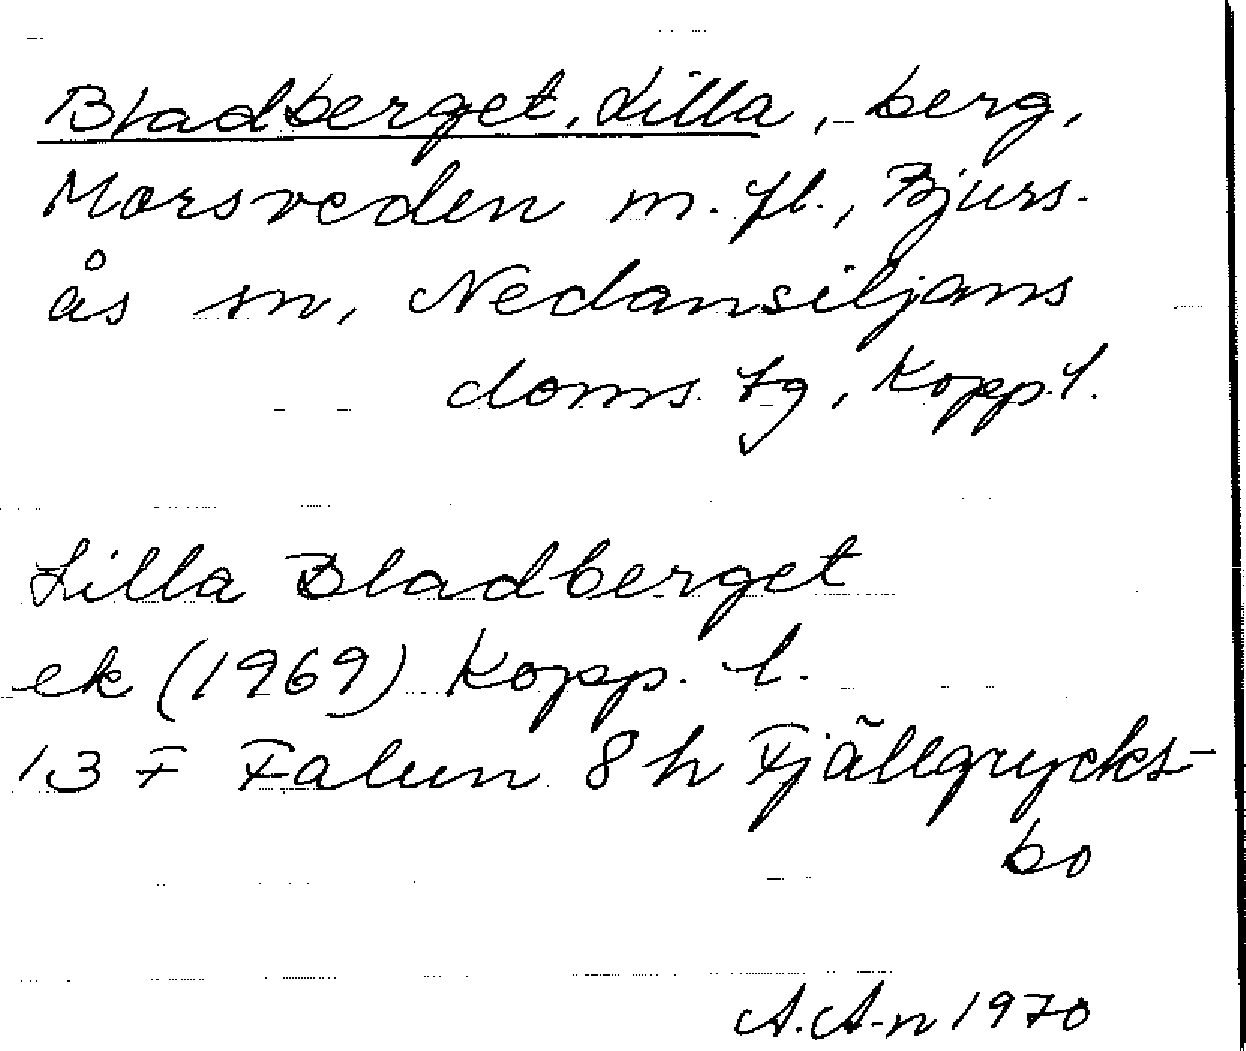 Bladberget, Lilla, berg,
Morsveden m. fl., Bjurs-
ås sn, Nedansiljans
doms tg, Kopp. l.
Lilla Bladberget
ek (1969) Kopp. l.
13 F Falun 8 h Fjällgrycks-
bo
A. A-n 1970